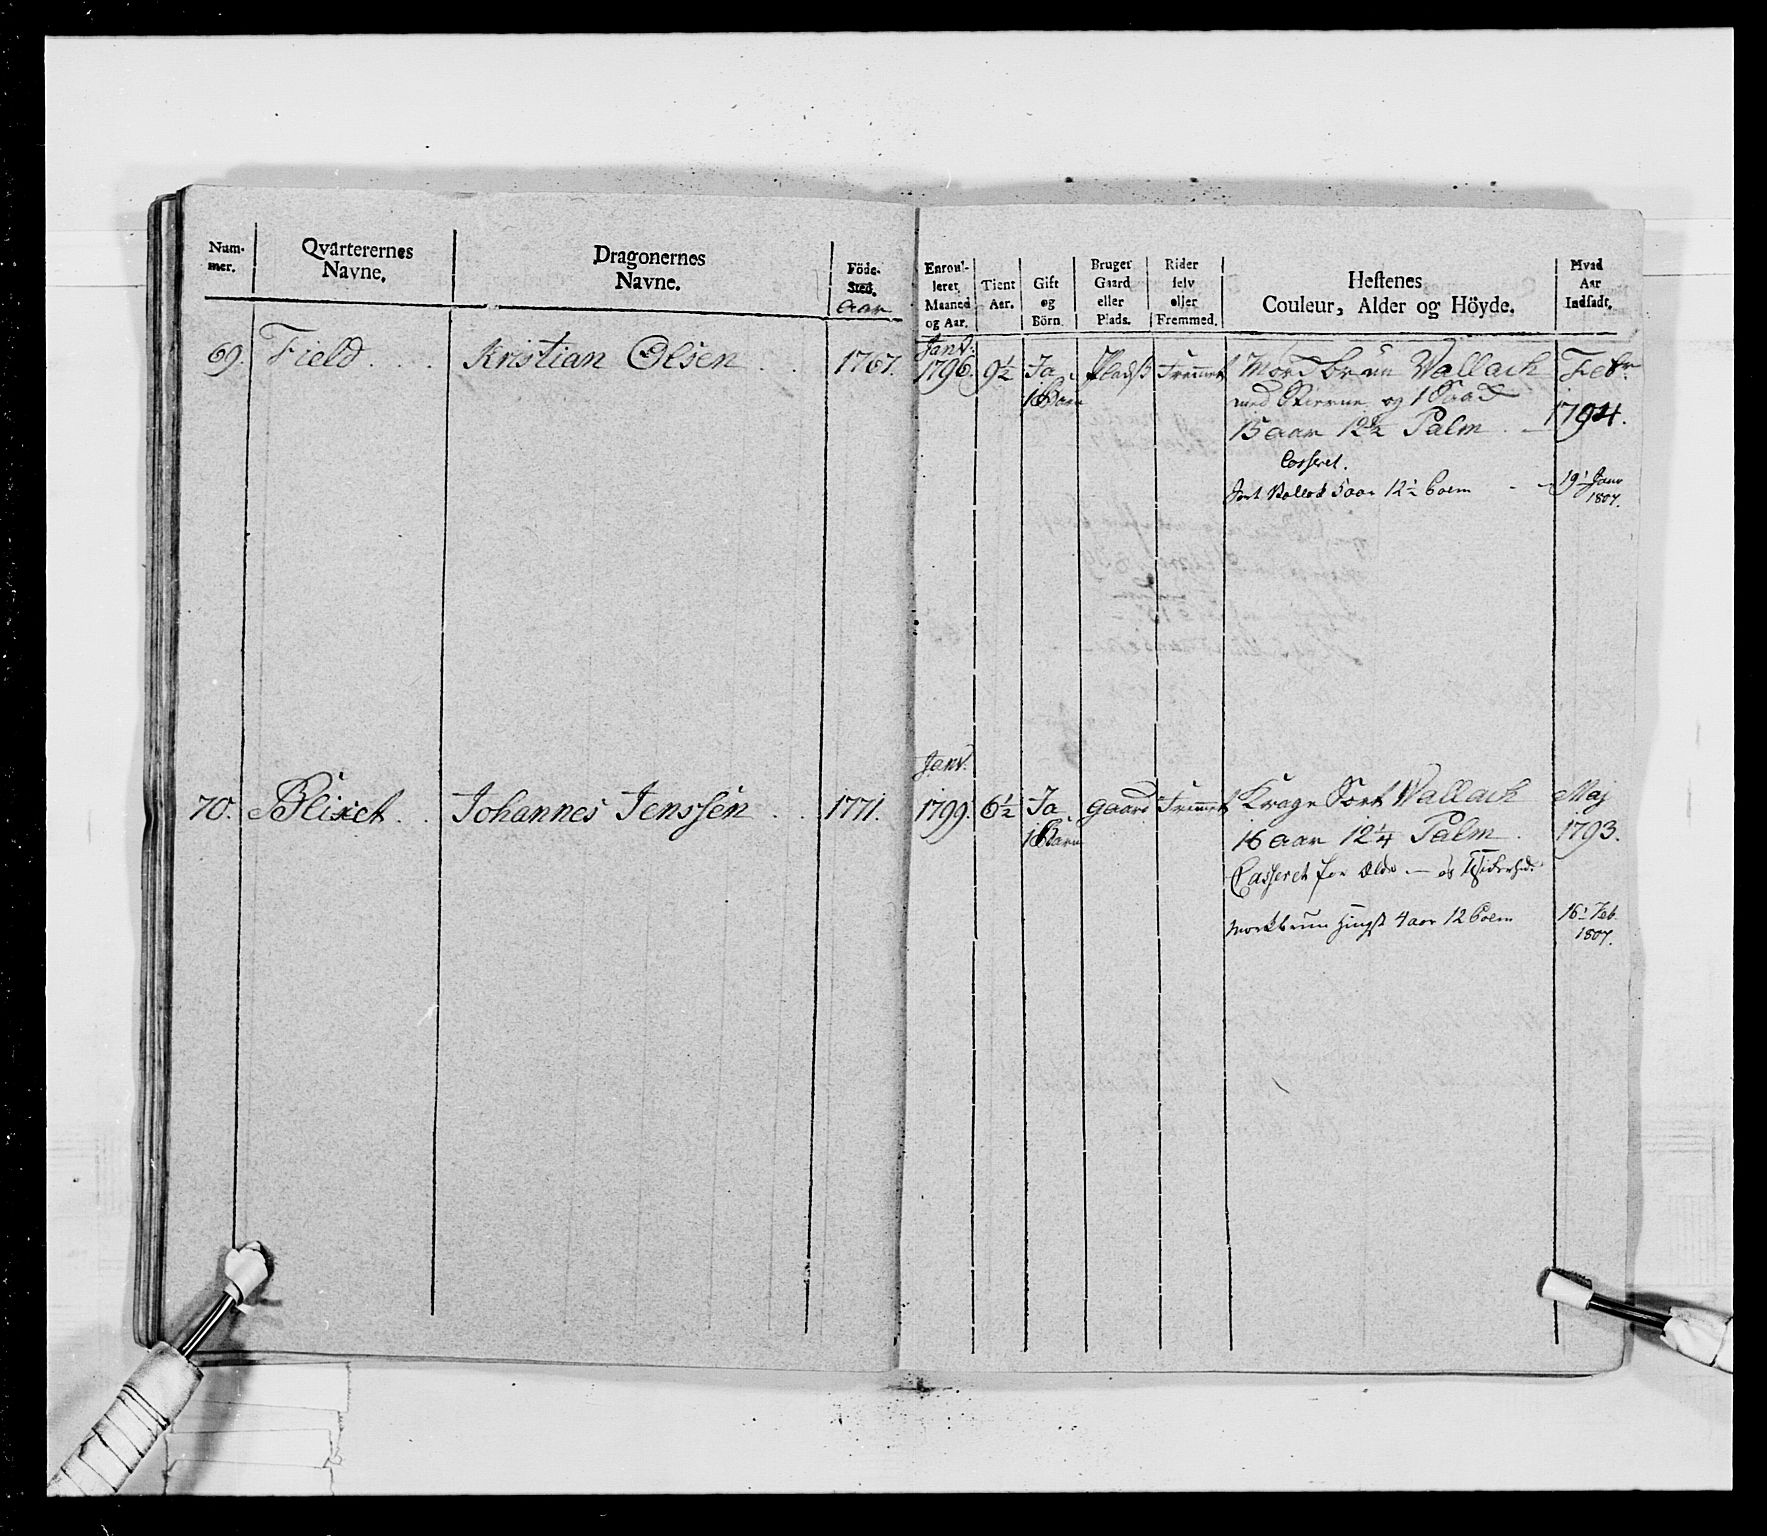 Num-
mer.
Qvarterernes
Navne.
Dragonernes
Navne.
Föde-
Sted.
Aar
Enroul-
leret
Maaned
og Aar.
Tient
Aar.
Gift
og
Börn.
Bruger
Gaard
eller
Plads.
Rider
selv
eller
Fremmed.
Hestenes
Couleur, Alder og Höyde.
Hvad
Aar
Indsadt.
69. Field . . . Kristian Olsen . . 1767. Janv: 1796. 9½ Ja 1 Barn Pladsß Fremmet Mord brun Wallach Febr
med Stierne og 1 Saad
15 aar 12½ Palm . 1794.
Casseret.
Sort Vallak 5 aar 12½ Palm - - 19' Janv
1807.
70. Blixet . . Johannes Jenssen . . 1771. Janv. 1799. 6½ Ja 1 Barn gaard Fremmet Kragn Sort Wallach Maj
16 aar 12¼ Palm . 1793.
Casseret for Ælde — og Stivhed.
Morkbrun Hingst 4 aar 12 Palm 16' Feb.
1807.